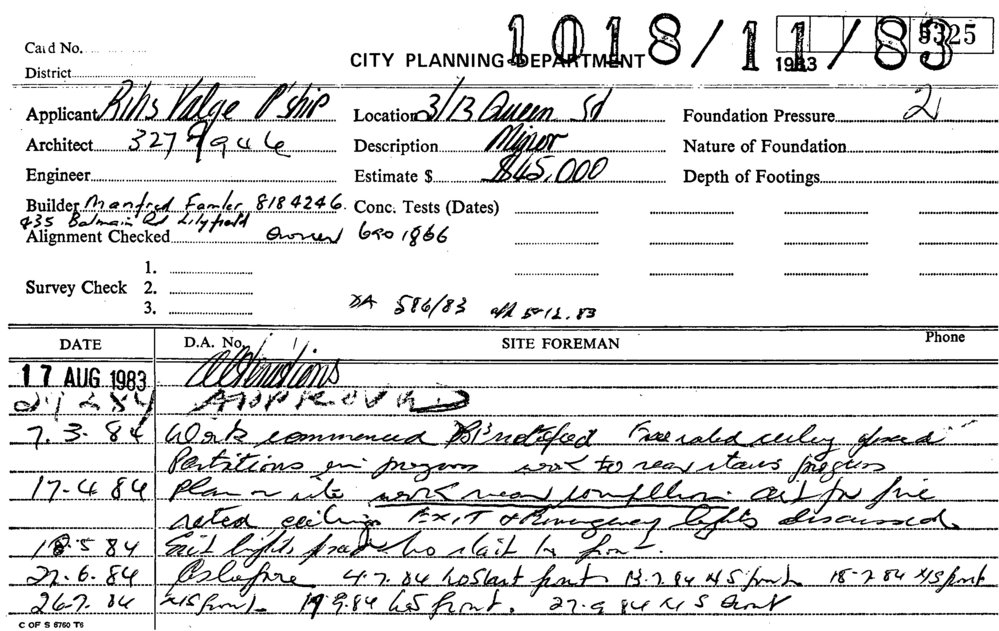 1018/11/83
5325
1983
Card No.
CITY PLANNING DEPARTMENT
District
Applicant P'ship Location 3/13 Queen Sd Foundation Pressure 21
Architect 327 9946 Description Minor Nature of Foundation
Engineer Estimate $ $45,000 Depth of Footings
Builder Manfred 8184246. Conc. Tests (Dates)
435 Balmain Rd Lilyfield
Alignment Checked Owner 690 1866
1.
Survey Check 2.
3.
DA 586/83 5.12.83
DATE D.A. No. SITE FOREMAN Phone
17 AUG 1983 Alterations
APPROVED
7.3.84 Work commenced notified Fire rated ceiling
Partitions in progress work to rear stairs progress
17.4.84 Plan on site work near completion cert for fire
rated ceiling EXIT & Emergency lights discussed.
18.5.84 Exit lights no start front.
27.6.84 4.7.84 no start front 13.7.84 N/S front 18.7.84 N/S front
26.7.84 N/S front. 19.9.84 front. 27.9.84 N S front
C OF S 6760 T6